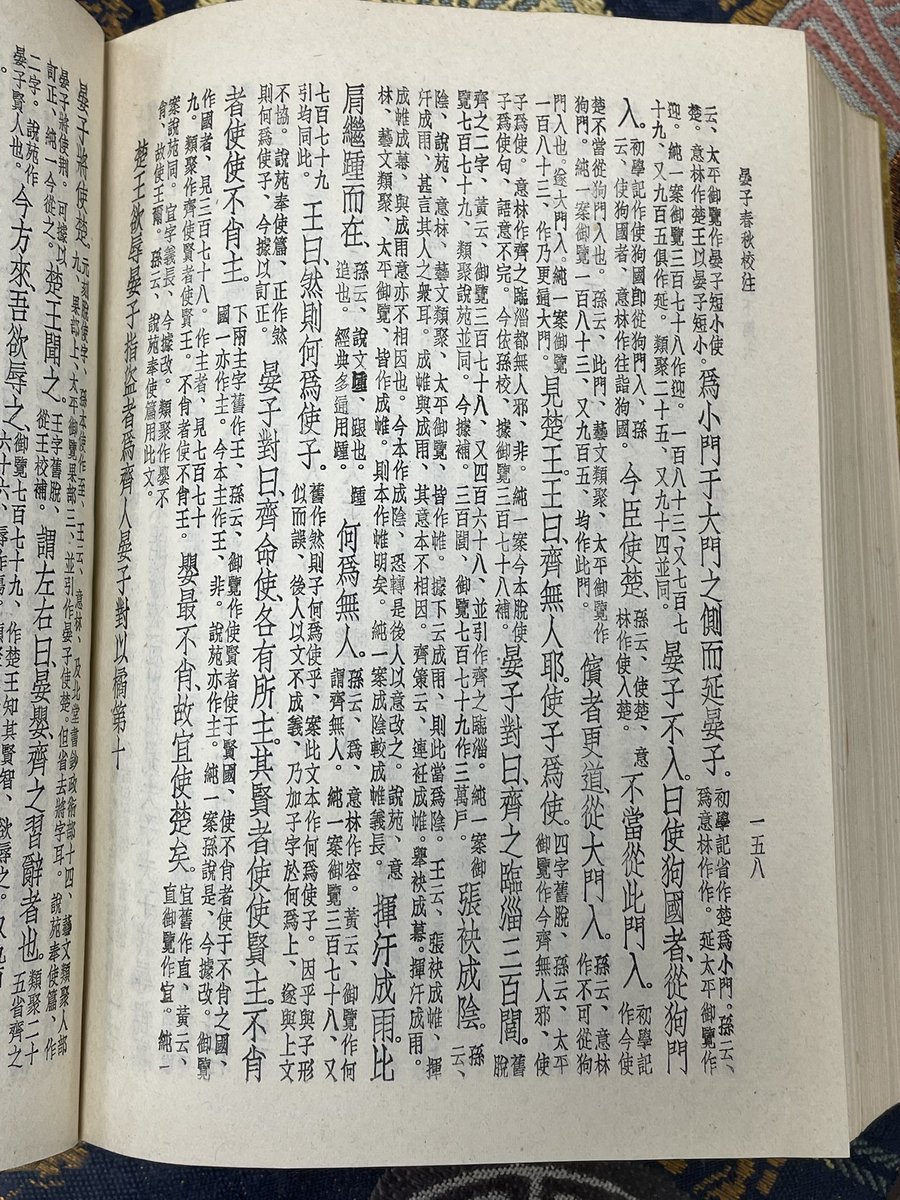 晏子春秋校注
一五八
云、太平御覽作晏子短小使楚。意林作楚王以晏子短小。為小門于大門之側而延晏子。初學記省作楚為小門。孫云、為意林作作。延太平御覽作
迎。純一案御覽三百七十八作迎。一百八十三、又七百七十九、又九百五俱作延。類聚二十五、又九十四並同。晏子不入。曰使狗國者、從狗門
入。初學記作使狗國即從狗門入、孫云、使狗國者、意林作往詣狗國。今臣使楚、孫云、使楚、意林作使入楚。不當從此門入。初學記作今使
楚不當從狗門入也。孫云、此門、藝文類聚、太平御覽作狗門。純一案御覽一百八十三、又九百五、均作此門。儐者更道、從大門入。孫云、意林作不可從狗
門入也。遂大門入。純一案御覽一百八十三、作乃更通大門。見楚王。王曰、齊無人耶。使子為使。四字舊脫、孫云、太平御覽作今齊無人邪、使
子為使。意林作齊之臨淄都無人邪、非。純一案今本脫使子為使句、語意不完。今依孫校、據御覽三百七十八補。晏子對曰、齊之臨淄三百閭。舊脫
齊之二字、黃云、御覽三百七十八、又四百六十八、並引作齊之臨淄。純一案御覽七百七十九、類聚說苑並同。今據補。三百閭、御覽七百七十九作三萬戶。張袂成陰。孫云、
陰、說苑、意林、藝文類聚、太平御覽、皆作帷。據下云成雨、則此當為陰。王云、張袂成帷、揮汗成雨、甚言其人之衆耳。成帷與成雨、其意本不相因。齊策云、連衽成帷。舉袂成幕。揮汗成雨。
成帷成幕、與成雨意亦不相因也。今本作成陰、恐轉是後人以意改之。說苑、意林、藝文類聚、太平御覽、皆作成帷。則本作帷明矣。純一案成陰較成帷義長。揮汗成雨。比
肩繼踵而在、孫云、說文歱、跟也。踵造也。經典多通用踵。何為無人。孫云、為、意林作容。黃云、御覽作何謂齊無人。純一案御覽三百七十八、又
七百七十九引均同此。王曰、然則何為使子。舊作然則子何為使乎、案此文本作何為使子。因乎與子形似而誤、後人以文不成義、乃加子字於何為上、遂與上文
不協。說苑奉使篇、正作然則何為使子、今據以訂正。晏子對曰、齊命使、各有所主。其賢者使使賢主。不肖
者使使不肖主。下兩主字舊作王、孫云、御覽作使賢者使于賢國、使不肖者使于不肖之國、國一亦作主。今本主作王、非。說苑亦作主。純一案孫說是、今據改。御覽
作國者、見三百七十八。作主者、見七百七十九。類聚作齊使賢者使賢王。不肖者使不肖王。嬰最不肖、故宜使楚矣。宜舊作直、黃云、直御覽作宜。純一
案說苑同。宜字義長、今據改。類聚作嬰不肖、故使王爾。孫云、說苑奉使篇用此文。
楚王欲辱晏子指盜者為齊人晏子對以橘第十
晏子將使楚、元刻脫使字、孫本使作至、王云、意林、及北堂書鈔政術部十四、藝文類聚人部九、果部上、太平御覽果部三、並引作晏子使楚。但省去將字耳。說苑奉使篇、作
晏子將使荆。可據以訂正、純一今從之。楚王聞之、王字舊脫、從王校補。謂左右曰、晏嬰、齊之習辭者也。類聚二十五省齊之
二字。說苑作晏子賢人也。今方來、吾欲辱之、御覽七百七十九、作楚王知其賢智、欲辱之。